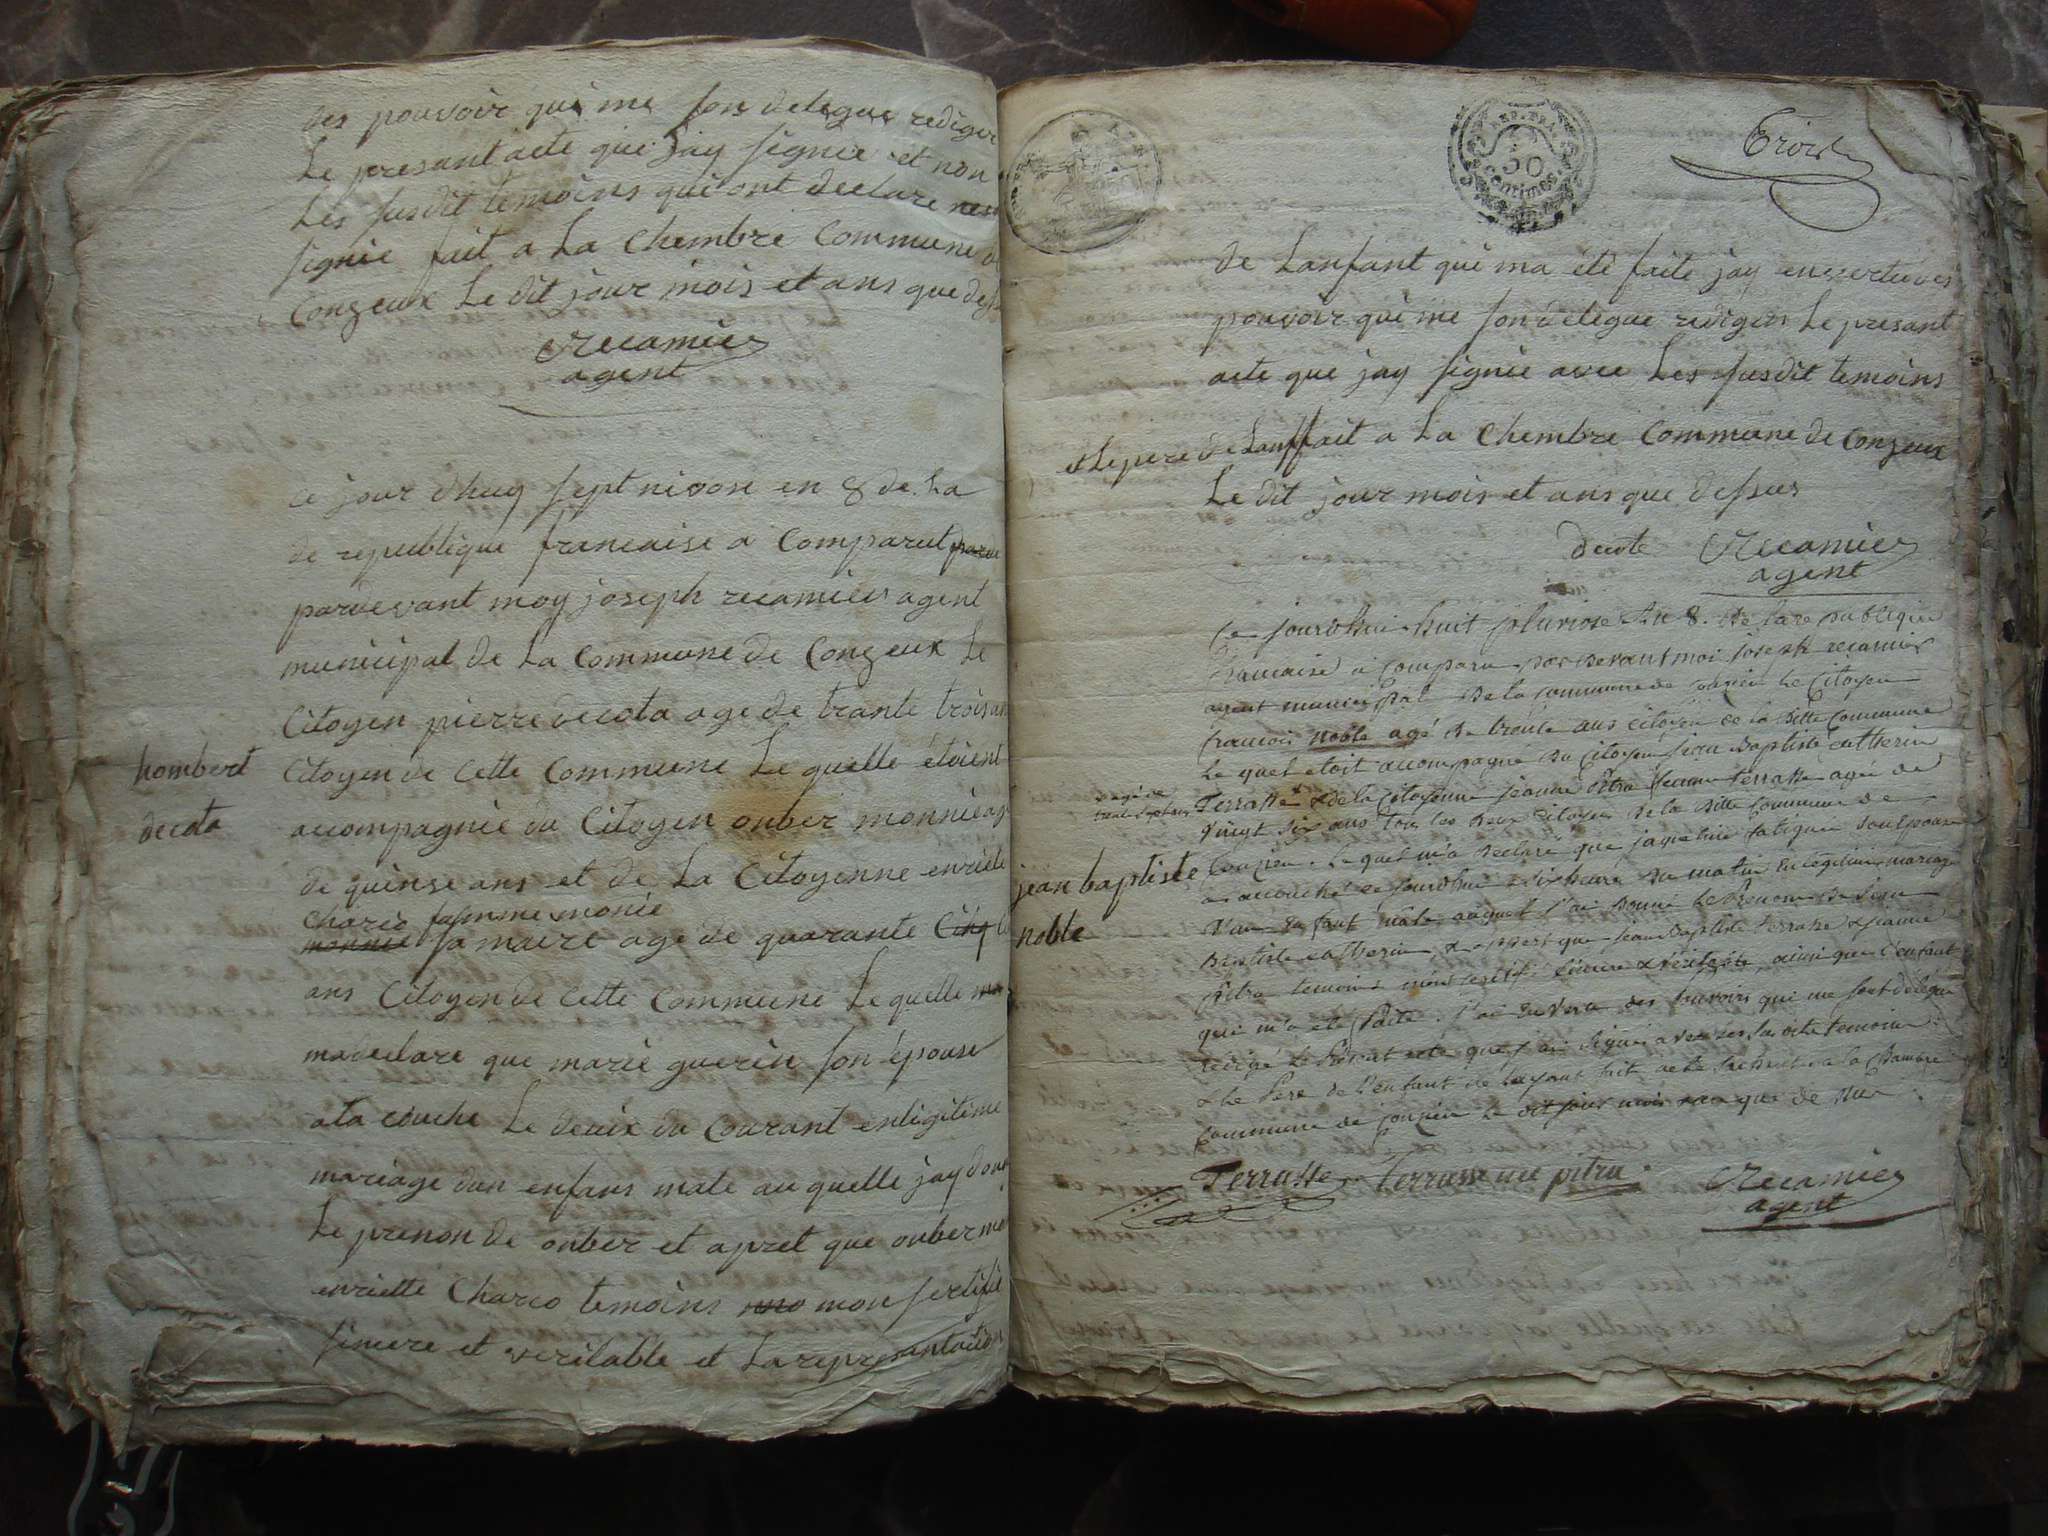 des pouvoir qui me son delegue rediger
Le presant acte que jay signee et non
Les susdit temoins qui ont declare
signie fait a La Chembre Commune
Conzeux Le dit jour mois et ans que
Recamier
agent
ce jour dhuy sept nivose en 8 de La
de republique francaise a Comparut
pardevant moy joseph recamier agent
municipal de La Commune de Conzeux Le
Citoyen pierre decota age de trante trois an
hombert
decota
Citoyen de Cette Commune Le quelle étoient
accompagnie du Citoyen onber monnie
de quinse ans et de La Citoyenne enriete
Charco famme monie
monnie sa maire age de quarante Cinq
ans Citoyen de Cette Commune Le quelle
madeclare que marie guerin son épouse
ata couche Le deuix du Courant enligitime
mariage dun enfans male au quelle jay
Le prenon de onber et apret que onber
enriette Charco temoins mon sertifié
sincere et veritable et La representation
REP. FRA.
50
centimes
Trois
de Lanfant qui ma été faite jay envertu des
pouvoir qui me son délegue rediger Le presant
acte que jay signie avec Les susdit temoins
et Le pere de Lanf fait a La Chembre Commune de Conzeux
Le dit jour mois et ans que dessus
decote Recamier
agent
Ce jourdhui huit pluviose An 8. de la republique
francaise a comparu par devant moi joseph recamier
agent municipal de la commune de conzieu le Citoyen
francois noble agé de trente ans citoyen de la ditte Commune
le quel etoit accompagné du Citoyen jean Baptiste catherin
Terrasse & de la Citoyenne jeanne Pitra femme Terrasse agée de
vingt six ans tous les deux citoyens de la ditte Commune de
jean baptiste
noble
Conzieu. le quel m'a déclaré que jaqueline fatigue son Epouse
a accouché ce jourdhui dix heure du matin en légitime mariage
d'un Enfant mâle auquel j'ai donné le Prenom de jean
Baptiste catherin, & apprert que jean Baptiste Terrasse & jeanne
Pitra temoins m'ont certifié sincere & véritable, ainsi que l'enfant
qui m'a été faite. j'ai en vertu des pouvoirs qui me sont délégué
redigé le Présent acte que j'ai signé avec les susdits temoins
& le Pere de l'enfant fait acte a la Chambre
Commune de conzieu le dit jour mois que de sus
Terrasse Terrasse née pitra Recamier
agent